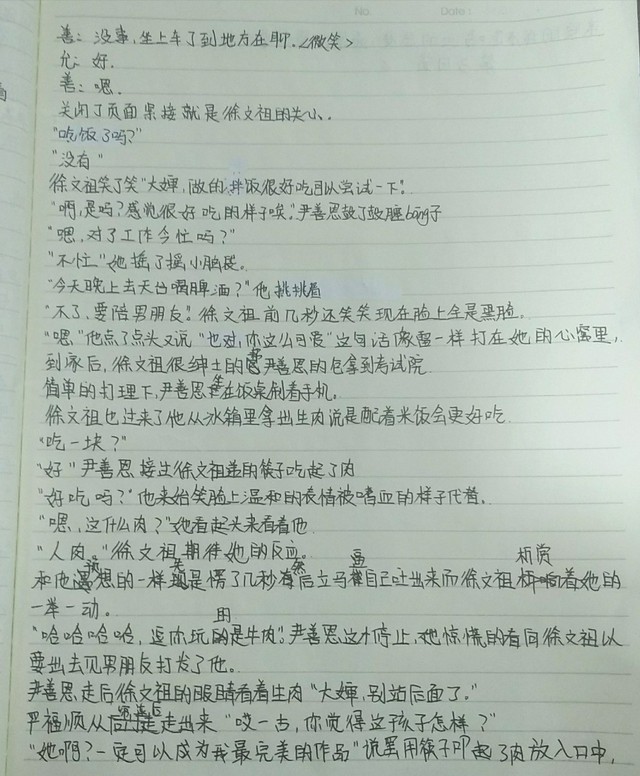 No. Date:
善：没事，坐上车了到地方在聊.<微笑>
允：好.
善：嗯.
关闭了页面紧接就是徐文祖的关心.
"吃饭了吗?"
"没有"
徐文祖笑了笑"大婶，做的拌饭很好吃可以尝试一下."
"啊，是吗?感觉很好吃的样子唉."尹善恩鼓了鼓腮bāng子
"嗯，对了工作今忙吗?"
"不忙"她摇了摇小脑袋.
"今天晚上去天台喝脾酒?"他挑挑眉
"不了，要陪男朋友."徐文祖前几秒还笑笑现在脸上全是黑脸。
"嗯"他点了点头又说"也对，你这么可爱"这句话像雷一样打在她的心窝里，
到家后，徐文祖很绅士的帮尹善恩的包拿到考试院
简单的打理下，尹善恩坐在饭桌刷着手机。
徐文祖也过来了他从冰箱里拿出生肉说是配着米饭会更好吃.
"吃一块?"
"好"尹善恩接过徐文祖递的筷子吃起了肉
"好吃吗?"他来始笑脸上温和的表情被嗜血的样子代替。
"嗯，这什么肉?"她看起头来看着他
"人肉。"徐文祖期待她的反应。
和他预想的一样先是愣了几秒然后立马逼自己吐出来而徐文祖析赏着她的
一举一动。
"哈哈哈哈，逗你玩的是牛肉."尹善恩这才停止，她惊慌的看向徐文祖以
要出去见男朋友打发了他。
尹善恩走后徐文祖的眼睛看着生肉"大婶，别站后面了。"
严福顺从后走出来"哎一古，你觉得这孩子怎样?"
"她啊?一定可以成为我最完美的作品"说罢用筷子叩起了肉放入口中，